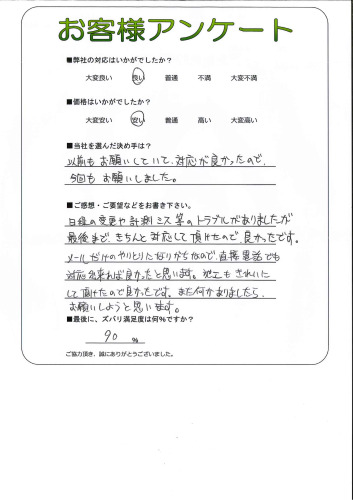 お客様アンケート
■弊社の対応はいかがでしたか？
大変良い 良い 普通 不満 大変不満
■価格はいかがでしたか？
大変安い 安い 普通 高い 大変高い
■当社を選んだ決め手は？
以前もお願いしていて、対応が良かったので、
今回もお願いしました。
■ご感想・ご要望などをお書き下さい。
日程の変更や計測ミス等のトラブルがありましたが
最後まで、きちんと対応して頂けたので良かったです。
メールだけのやりとりになりがちなので、直接電話でも
対応出来れば良かったと思います。施工もきれいに
して頂けたので良かったです。また何かありましたら、
お願いしようと思います。
■最後に、ズバリ満足度は何％ですか？
90 %
ご協力頂き、誠にありがとうございました。